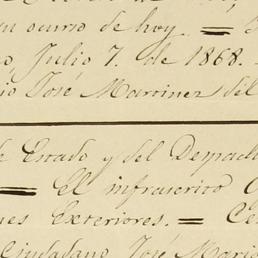 n ocurso de hoy. =
Julio 7. de 1868.
io José Martinez del
e Estado y del Despac
= El infrascrito
es Exteriores. = Ce
Ciudadano José Maria